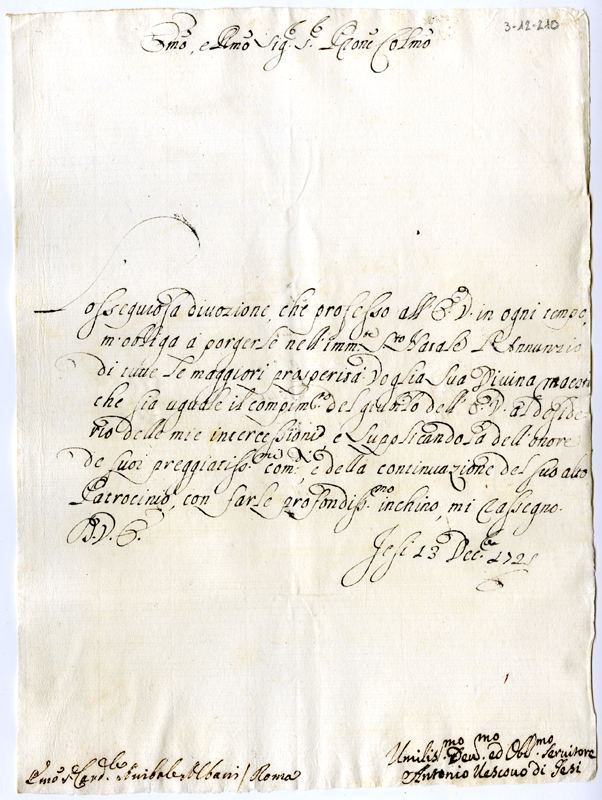 3-12-210
Emo, e Rmo Sig.r S.r Prone Colmo
L'ossequiosa divozione, che professo all'E.V. in ogni tempo,
m'obliga a porgerle nell'imm.te S.to Natale l'Annunzio
di tutte le maggiori prosperità. Voglia Sua Divina maestà
che sia uguale il compim.to del giubilo dell'E.V. al deside-
rio delle mie intercessioni e supplicandola dell'onore
de suoi preggiatiss.mi com.di, e della continuazione del suo alto
Patrocinio, con farle profondiss.mo inchino, mi rassegno.
D.V.E.
Jesi 13 Dec.bre 1721
Emo S.r Card.le Annibale Albani / Roma
Umilis.mo Dev.mo ed Obl.mo Servitore
Antonio Vescovo di Jesi